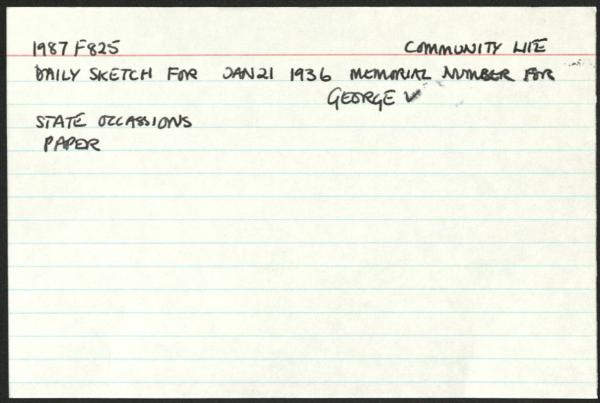 1987 F825 COMMUNITY LIFE
DAILY SKETCH FOR JAN 21 1936 MEMORIAL NUMBER FOR
GEORGE V
STATE OCCASSIONS
PAPER